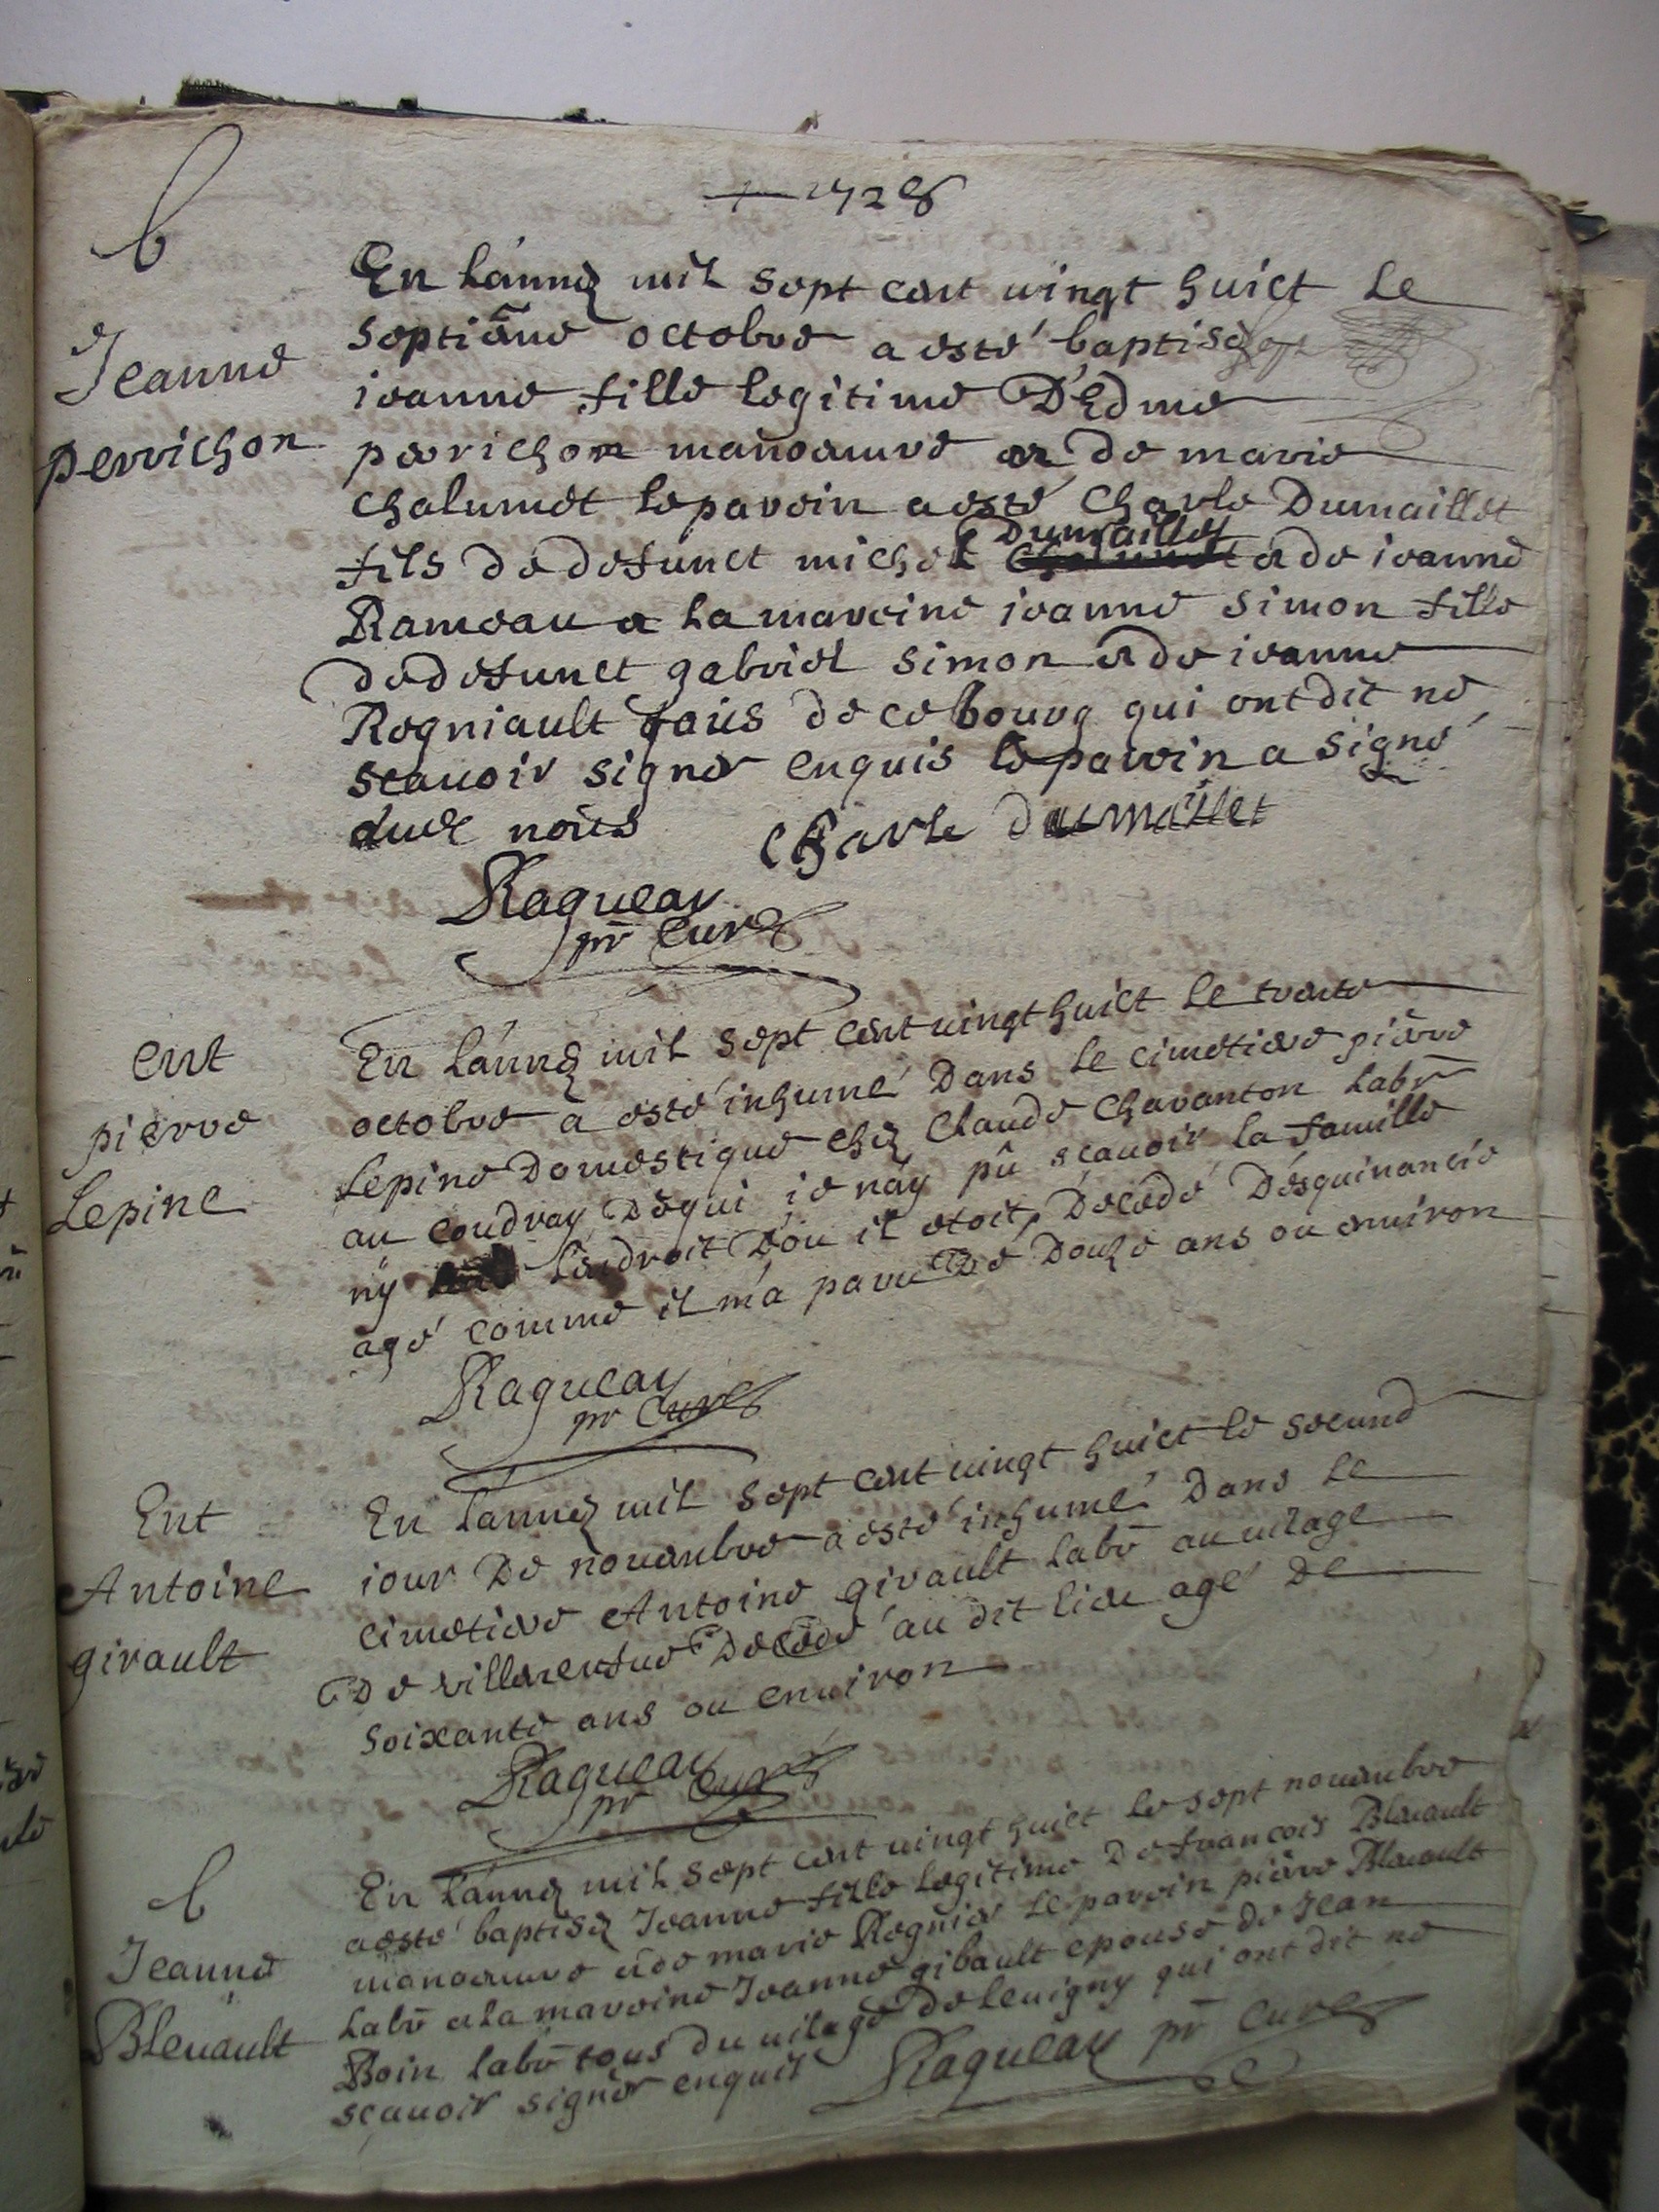 1728
b
Jeanne
perrichon
En Lánneé mil sept cent uingt huict Le
septiême octobre a esté baptiseé
ieanne fille legitime D'Edme
perrichon manoeuure et de marie
chalumet le parein a esté Charle Dumaillet
Dumaillet
fils de defunct michel et de ieanne
Rameau et La mareine ieanne simon fille
de defunct gabriel simon et de ieanne
Regniault tous de ce bourg qui ont dit ne
scauoir signer enquis le parein a signé
auec nous
Charle dumaillet
Ragueau
pr Curé
ent
pierre
Lepine
En Lánneé mil sept cent uingt huict Le trente
octobre a esté inhumé Dans Le cimetiere piêrre
Lepine Domestique chez Claude Chaventon Labr
au Coudray De qui ie náy pû scauoir la famille
ny Lendroit D'ou il etoit, Decedé D'esquinancie
agé comme il m'a paru De Douze ans ou enuiron
Ragueau
pr Curé
Ent
Antoine
girault
En Lánneé mil sept cent uingt huict le second
iour De nouembre a esté inhumé Dans Le
cimetiere Antoine girault Labr au uilage
De Decedé au dit lieu agé De
soixante ans ou enuiron
Ragueau
pr Curé
b
Jeanne
Bleuault
En Lánneé mil sept cent uingt huict le sept nouembre
a esté baptiseé Jeanne fille legitime De francois Bleuault
manoeuure et de marie Regnier Le parein piêrre Bleuault
Labr et La mareine Jeanne gibault epouse de Jean
Boin Labr tous Du uilage De leuigny qui ont dit ne
scauoir signer enquis
Ragueau pr Curé